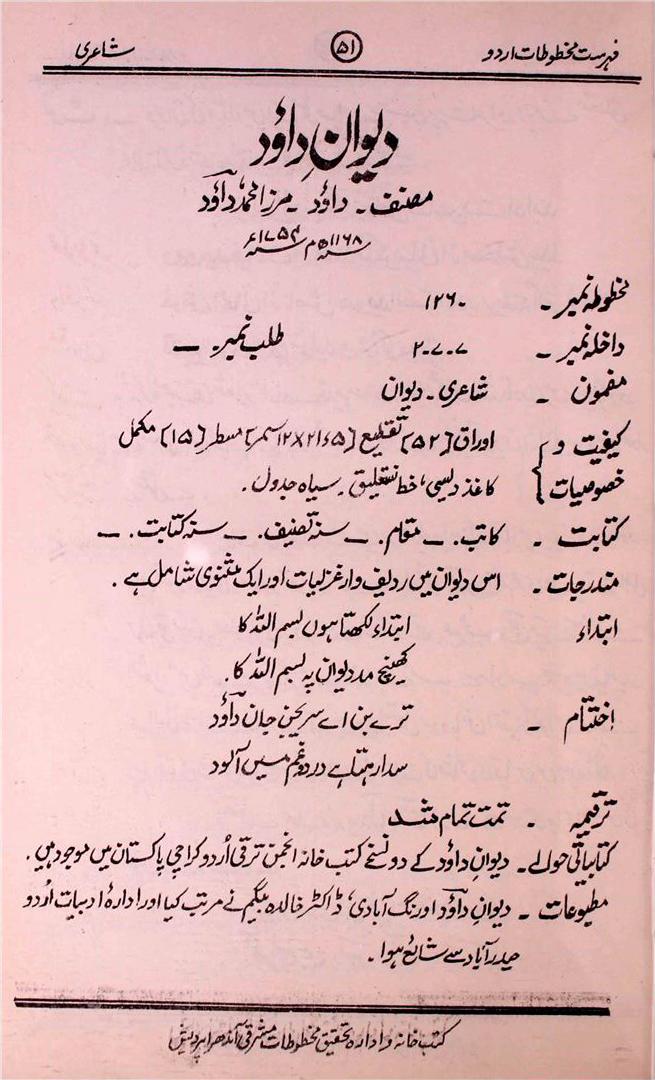 فہرست مخطوطات اردو ۵۱ شاعری
دیوانِ داؤد
مصنف ۔ داؤد ۔ مرزا محمد داؤد
۱۱۶۸ھ م ۱۷۵۴ء
مخطوطہ نمبر ۔ ۱۲۶۰
داخلہ نمبر ۔ ۲۰۷۰۷ طلب نمبر۔ —
مضمون ۔ شاعری ۔ دیوان
کیفیت و اوراق [۵۲] تقطیع [۲۱٫۵×۱۲ سمر] مسطر [۱۵] مکمل
خصوصیات کاغذ دیسی، خط نستعلیق ۔ سیاہ جدول ۔
کتابت ۔ کاتب ۔ — مقام ۔ — سنہ تصنیف ۔ — سنہ کتابت ۔ —
مندرجات ۔ اس دیوان میں ردیف وار غزلیات اور ایک مثنوی شامل ہے ۔
ابتداء ابتداء لکھتا ہوں بسم اللہ کا
کھینچ مد دیوان پہ بسم اللہ کا ۔
اختتام ۔ ترے بن اے سریجن جان داؤد
سدا رہتا ہے درد و غم میں آلود
ترقیمہ ۔ تمت تمام شد
کتابیاتی حوالے ۔ دیوان داؤد کے دو نسخے کتب خانہ انجمن ترقی اُردو کراچی پاکستان میں موجود ہیں ۔
مطبوعات ۔ دیوانِ داؤد اورنگ آبادی، ڈاکٹر خالدہ بیگم نے مرتب کیا اور ادارۂ ادبیات اُردو
حیدرآباد سے شائع ہوا ۔
کتب خانہ و ادارہ تحقیق مخطوطات مشرقی آندھرا پردیش